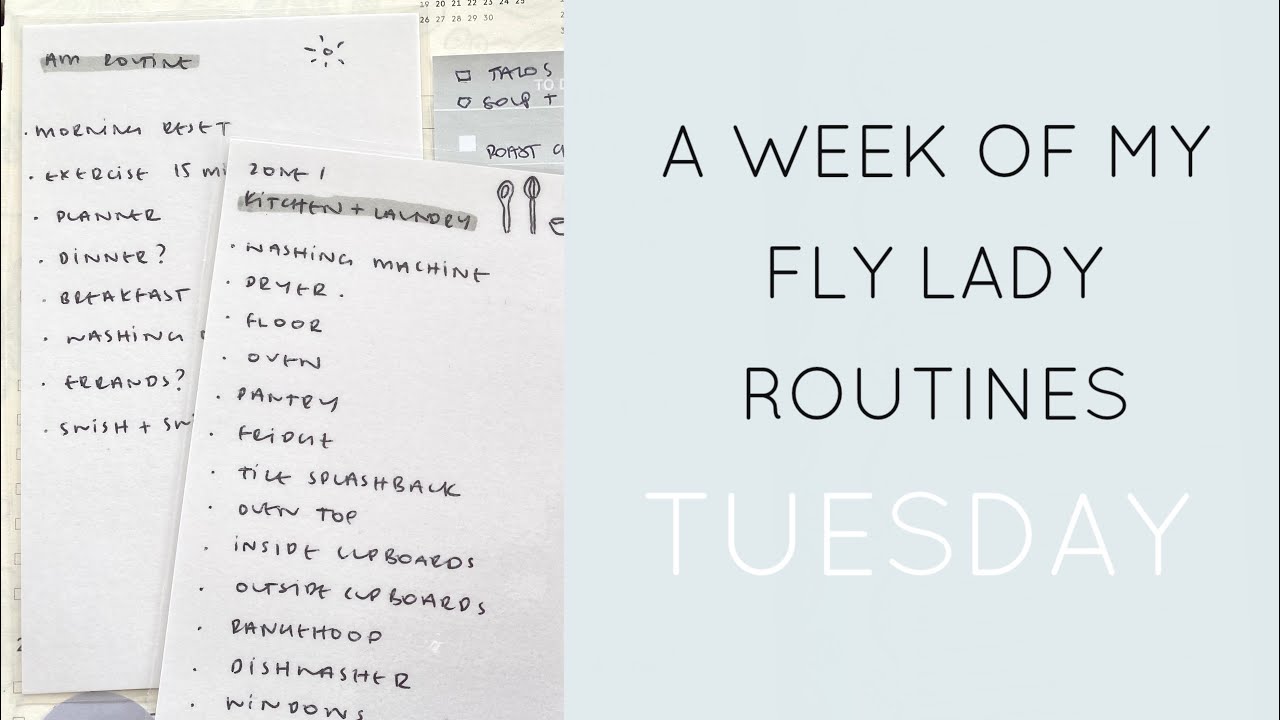 19 20 21 22 23 24 25
26 27 28 29 30
AM ROUTINE
MORNING RESET
EXERCISE 15 MI
PLANNER
DINNER?
BREAKFAST
WASHING
ERRANDS?
SWISH + SW
ZONE 1
KITCHEN + LAUNDRY
WASHING MACHINE
DRYER.
FLOOR
OVEN
PANTRY
FRIDGE
TILE SPLASHBACK
OVEN TOP
INSIDE CUPBOARDS
OUTSIDE CUPBOARDS
RANGEHOOD
DISHWASHER
WINDOWS
TACOS
TO D
SOUP +
ROAST C
A WEEK OF MY
FLY LADY
ROUTINES
TUESDAY